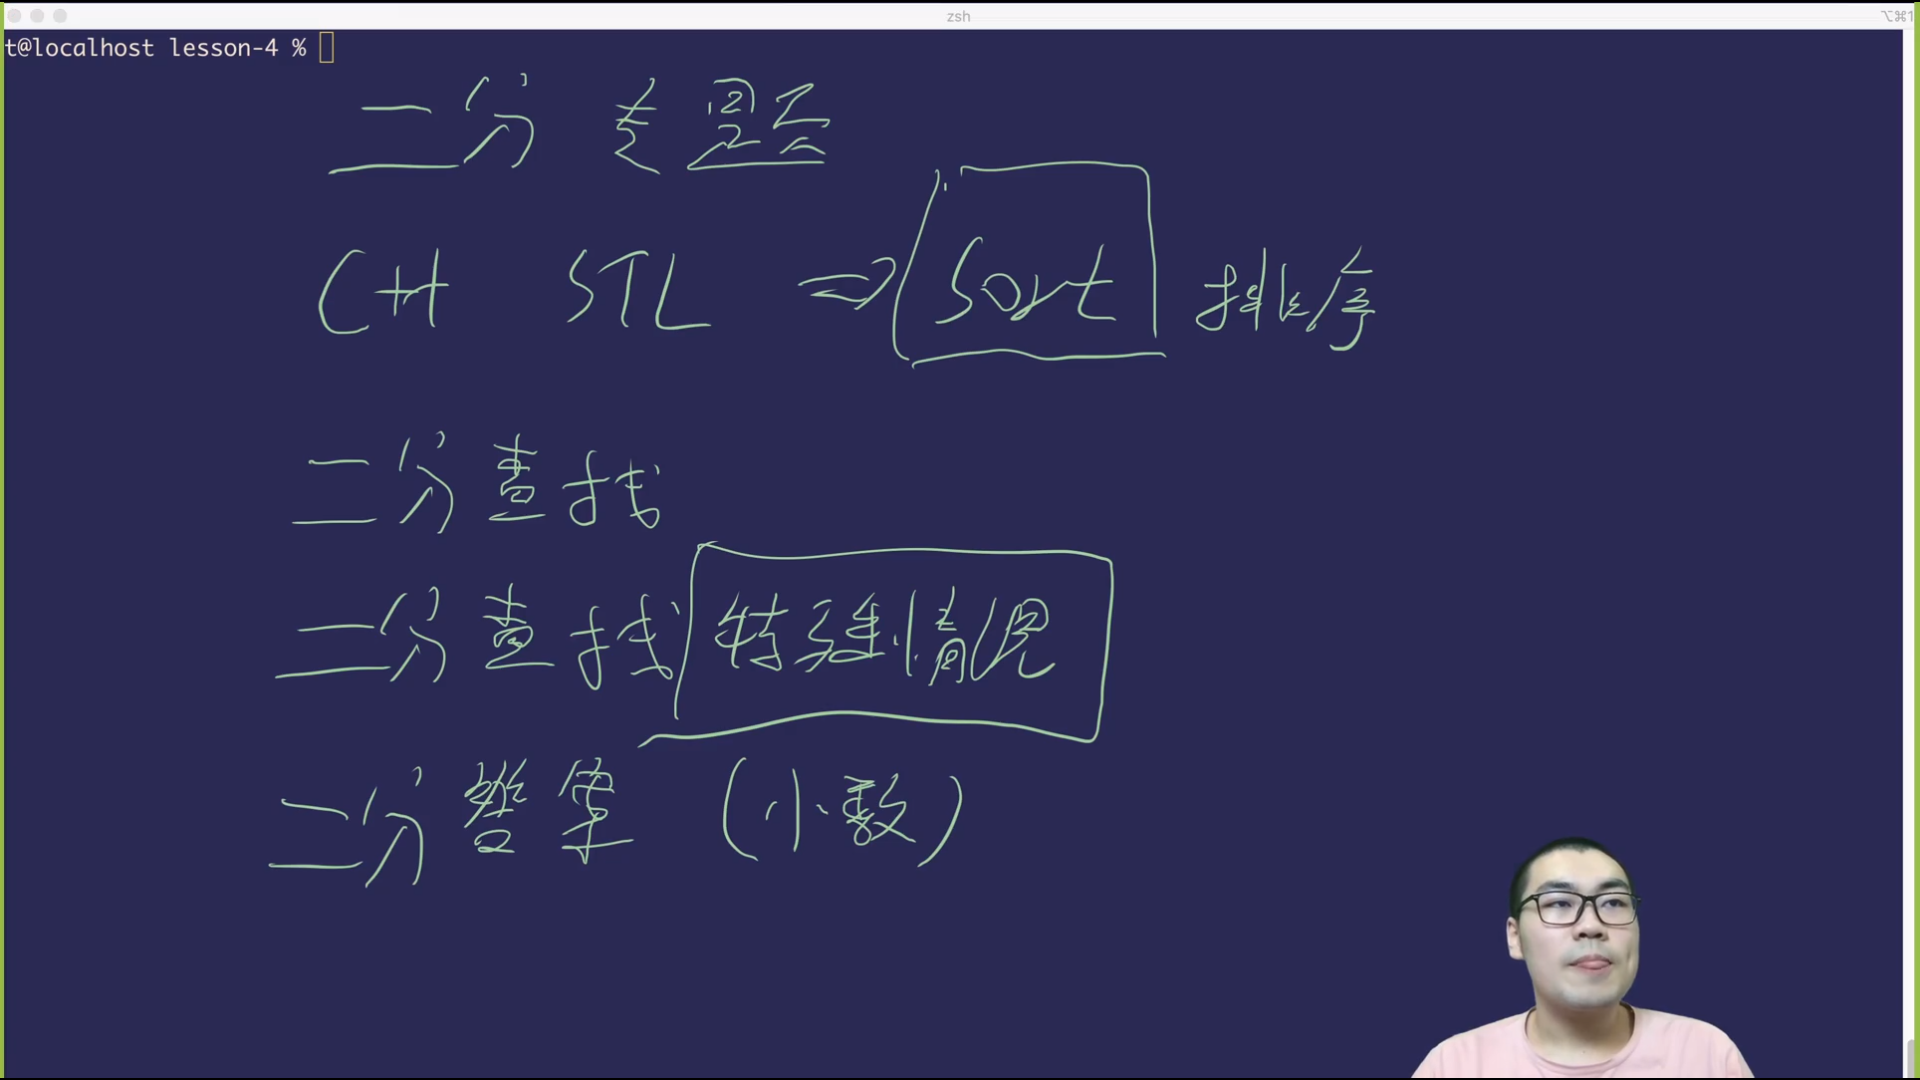 zsh
⌥⌘1
t@localhost lesson-4 %
二分专题
C++ STL ⇒ Sort 排序
二分查找
二分查找 特殊情况
二分答案 (小数)